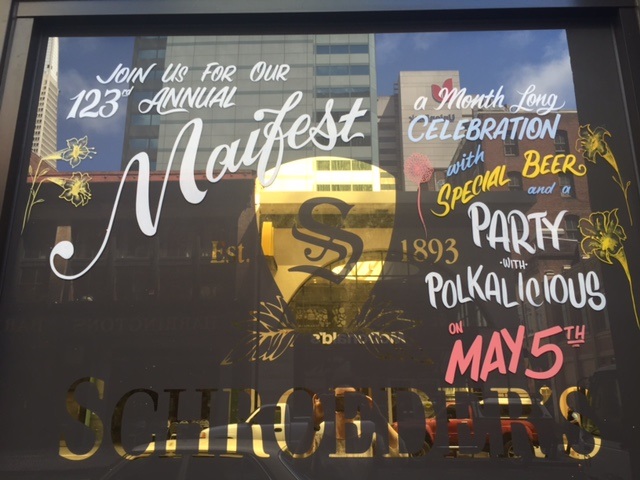 JOIN US FOR OUR
123rd ANNUAL
Maifest
a Month Long
CELEBRATION
with
SPECIAL BEER
and a
PARTY
-WITH-
POLKALICIOUS
ON
MAY 5TH
Est. S 1893
SCHROEDER'S